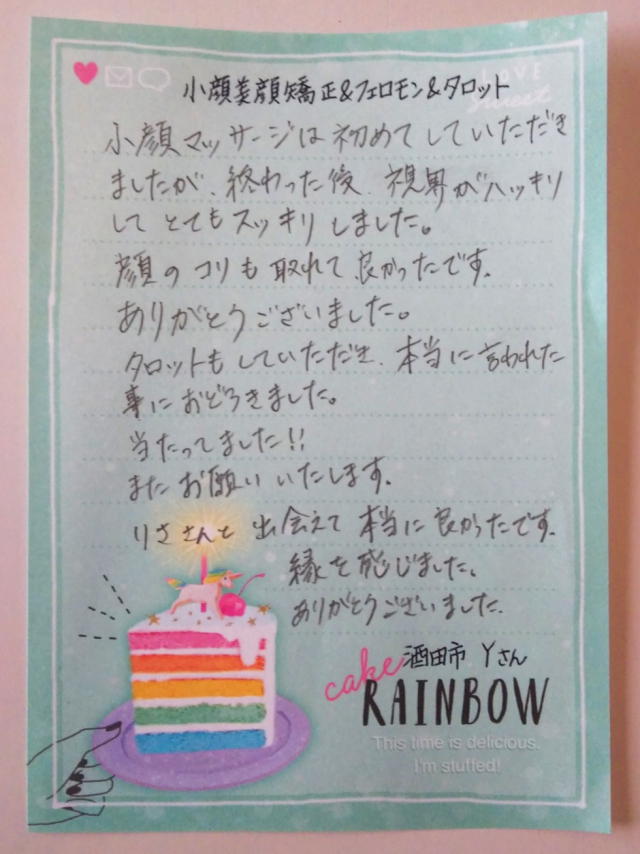 小顔美顔矯正&フェロモン&タロット
LOVE
Sweet
小顔マッサージは初めてしていただき
ましたが、終わった後、視界がハッキリ
してとてもスッキリしました。
顔のコリも取れて良かったです。
ありがとうございました。
タロットもしていただき、本当に言われた
事におどろきました。
当たってました!!
またお願いいたします。
りささんと出会えて本当に良かったです。
縁を感じました。
ありがとうございました。
酒田市 Yさん
cake
RAINBOW
This time is delicious.
I'm stuffed!